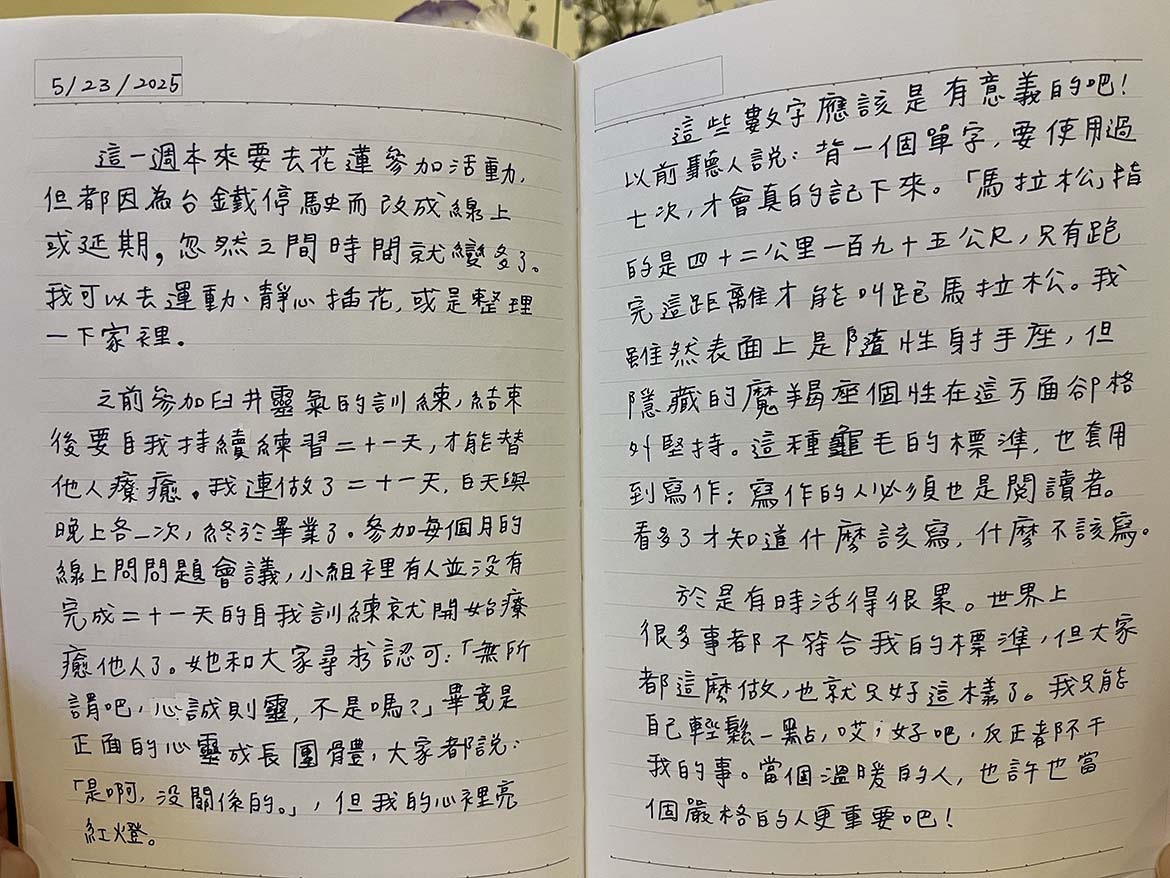 5/23/2025
這一週本來要去花蓮參加活動，
但都因為台鐵停駛而改成線上
或延期，忽然之間時間就變多了。
我可以去運動、靜心插花，或是整理
一下家裡。
之前參加臼井靈氣的訓練，結束
後要自我持續練習二十一天，才能替
他人療癒。我連做了二十一天，白天與
晚上各一次，終於畢業了。參加每個月的
線上問問題會議，小組裡有人並沒有
完成二十一天的自我訓練就開始療
癒他人了。她和大家尋求認可：「無所
謂吧，心誠則靈，不是嗎？」畢竟是
正面的心靈成長團體，大家都說：
「是啊，沒關係的。」，但我的心裡亮
紅燈。
這些數字應該是有意義的吧！
以前聽人說：背一個單字，要使用過
七次，才會真的記下來。「馬拉松」指
的是四十二公里一百九十五公尺，只有跑
完這距離才能叫跑馬拉松。我
雖然表面上是隨性射手座，但
隱藏的魔羯座個性在這方面卻格
外堅持。這種龜毛的標準，也套用
到寫作：寫作的人必須也是閱讀者。
看多了才知道什麼該寫，什麼不該寫。
於是有時活得很累。世界上
很多事都不符合我的標準，但大家
都這麼做，也就只好這樣了。我只能
自己輕鬆一點，哎，好吧，反正都不干
我的事。當個溫暖的人，也許也當
個嚴格的人更重要吧！